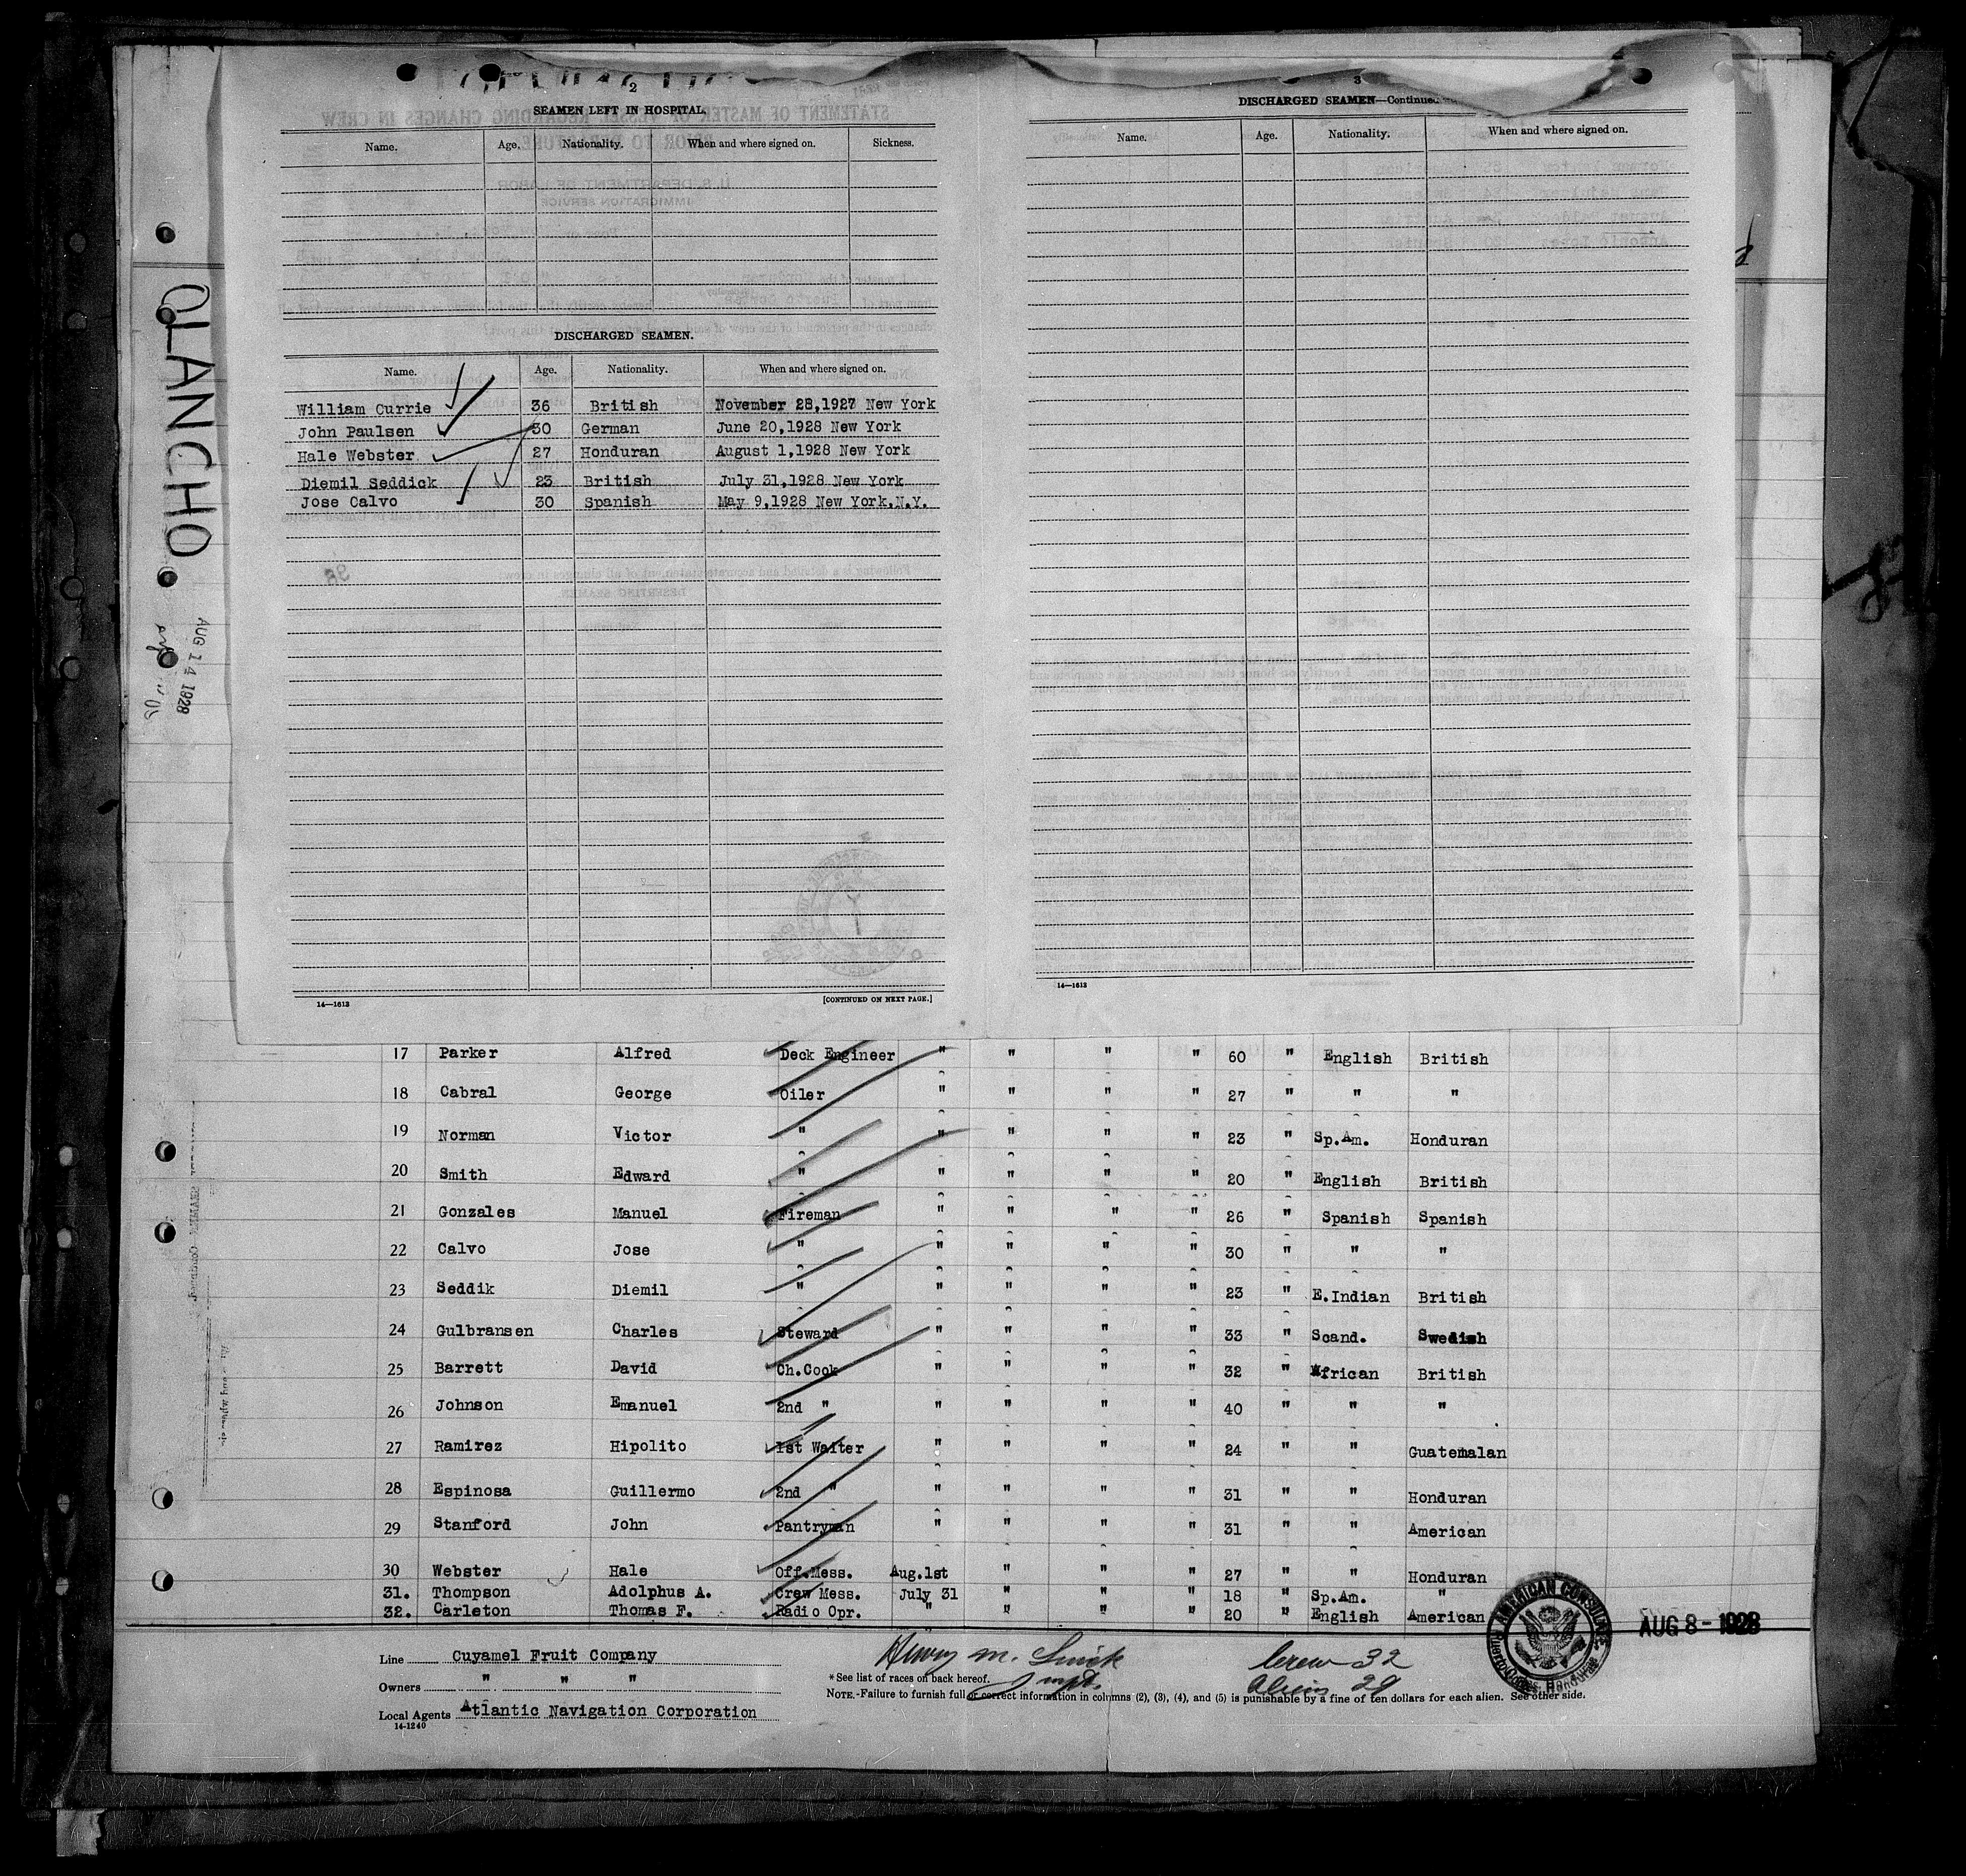 OLANCHO
AUG 14 1928
2
SEAMEN LEFT IN HOSPITAL.
Name. Age. Nationality. When and where signed on. Sickness.
DISCHARGED SEAMEN.
Name. Age. Nationality. When and where signed on.
William Currie 36 British November 28,1927 New York
John Paulsen 30 German June 20,1928 New York
Hale Webster 27 Honduran August 1,1928 New York
Diemil Seddick 23 British July 31,1928 New York
Jose Calvo 30 Spanish May 9,1928 New York,N.Y.
14—1613 [CONTINUED ON NEXT PAGE.]
3
DISCHARGED SEAMEN—Continued
Name. Age. Nationality. When and where signed on.
14—1613
17 Parker Alfred Deck Engineer " " " " 60 " English British
18 Cabral George Oiler " " " " 27 " " "
19 Norman Victor " " " " " 23 " Sp.Am. Honduran
20 Smith Edward " " " " " 20 " English British
21 Gonzales Manuel Fireman " " " " 26 " Spanish Spanish
22 Calvo Jose " " " " " 30 " " "
23 Seddik Diemil " " " " " 23 " E.Indian British
24 Gulbransen Charles Steward " " " " 33 " Scand. Swedish
25 Barrett David Ch.Cook " " " " 32 " African British
26 Johnson Emanuel 2nd " " " " " 40 " " "
27 Ramirez Hipolito 1st Waiter " " " " 24 " " Guatemalan
28 Espinosa Guillermo 2nd " " " " " 31 " " Honduran
29 Stanford John Pantryman " " " " 31 " " American
30 Webster Hale Off.Mess. Aug.1st " " " 27 " " Honduran
31. Thompson Adolphus A. Crew Mess. July 31 " " " 18 " Sp.Am. "
32. Carleton Thomas F. Radio Opr. " " " " 20 " English American
AMERICAN CONSULATE
Puerto Cortes, Honduras
AUG 8 - 1928
Line Cuyamel Fruit Company
Owners " " "
Local Agents Atlantic Navigation Corporation
14-1240
Henry M.
Crew 32
Aliens 29
*See list of races on back hereof.
NOTE.-Failure to furnish full or correct information in columns (2), (3), (4), and (5) is punishable by a fine of ten dollars for each alien. See other side.